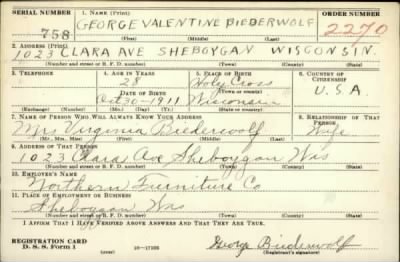 SERIAL NUMBER 1. NAME (Print) ORDER NUMBER
758 GEORGE VALENTINE BIEDERWOLF 2270
(First) (Middle) (Last)
2. ADDRESS (Print)
1023 CLARA AVE SHEBOYGAN WISCONSIN.
(Number and street or R. F. D. number) (Town) (County) (State)
3. TELEPHONE 4. AGE IN YEARS 5. PLACE OF BIRTH 6. COUNTRY OF CITIZENSHIP
28 Holy Cross
(Town or county)
DATE OF BIRTH U.S.A.
Oct 30 1911 Wisconsin
(Exchange) (Number) (Mo.) (Day) (Yr.) (State or country)
7. NAME OF PERSON WHO WILL ALWAYS KNOW YOUR ADDRESS 8. RELATIONSHIP OF THAT PERSON
Mrs Virginia Biederwolf Wife
(Mr., Mrs., Miss) (First) (Middle) (Last)
9. ADDRESS OF THAT PERSON
1023 Clara Ave Sheboygan Wis
(Number and street or R. F. D. number) (Town) (County) (State)
10. EMPLOYER'S NAME
Northern Furniture Co
11. PLACE OF EMPLOYMENT OR BUSINESS
Sheboygan Wis
(Number and street or R. F. D. number) (Town) (County) (State)
I AFFIRM THAT I HAVE VERIFIED ABOVE ANSWERS AND THAT THEY ARE TRUE.
REGISTRATION CARD
D. S. S. Form 1 (over) 16—17105 George Biederwolf
(Registrant's signature)